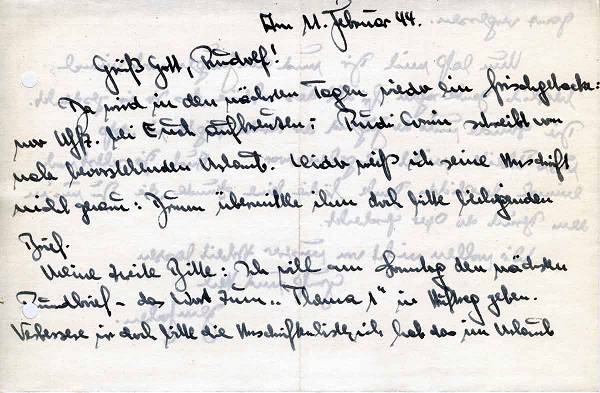 Am 11. Februar 44.
Grüß Gott, Rudolf!
Da wird in den nächsten Tagen wieder ein frischgebacke:
ner Uffz. bei Euch aufkreuzen; Rudi schreibt von
nahe bevorstehenden Urlaub. Leider weiß ich seine Anschrift
nicht genau: Drum übermittle ihm doch bitte beiliegenden
Brief.
Meine zweite Bitte: Ich will am Sonntag den nächsten
Rundbrief – das Wort zum „Thema 1" in Auftrag geben.
Verbessere ir doch bitte die Anschriftenliste, ich hab das im Urlaub